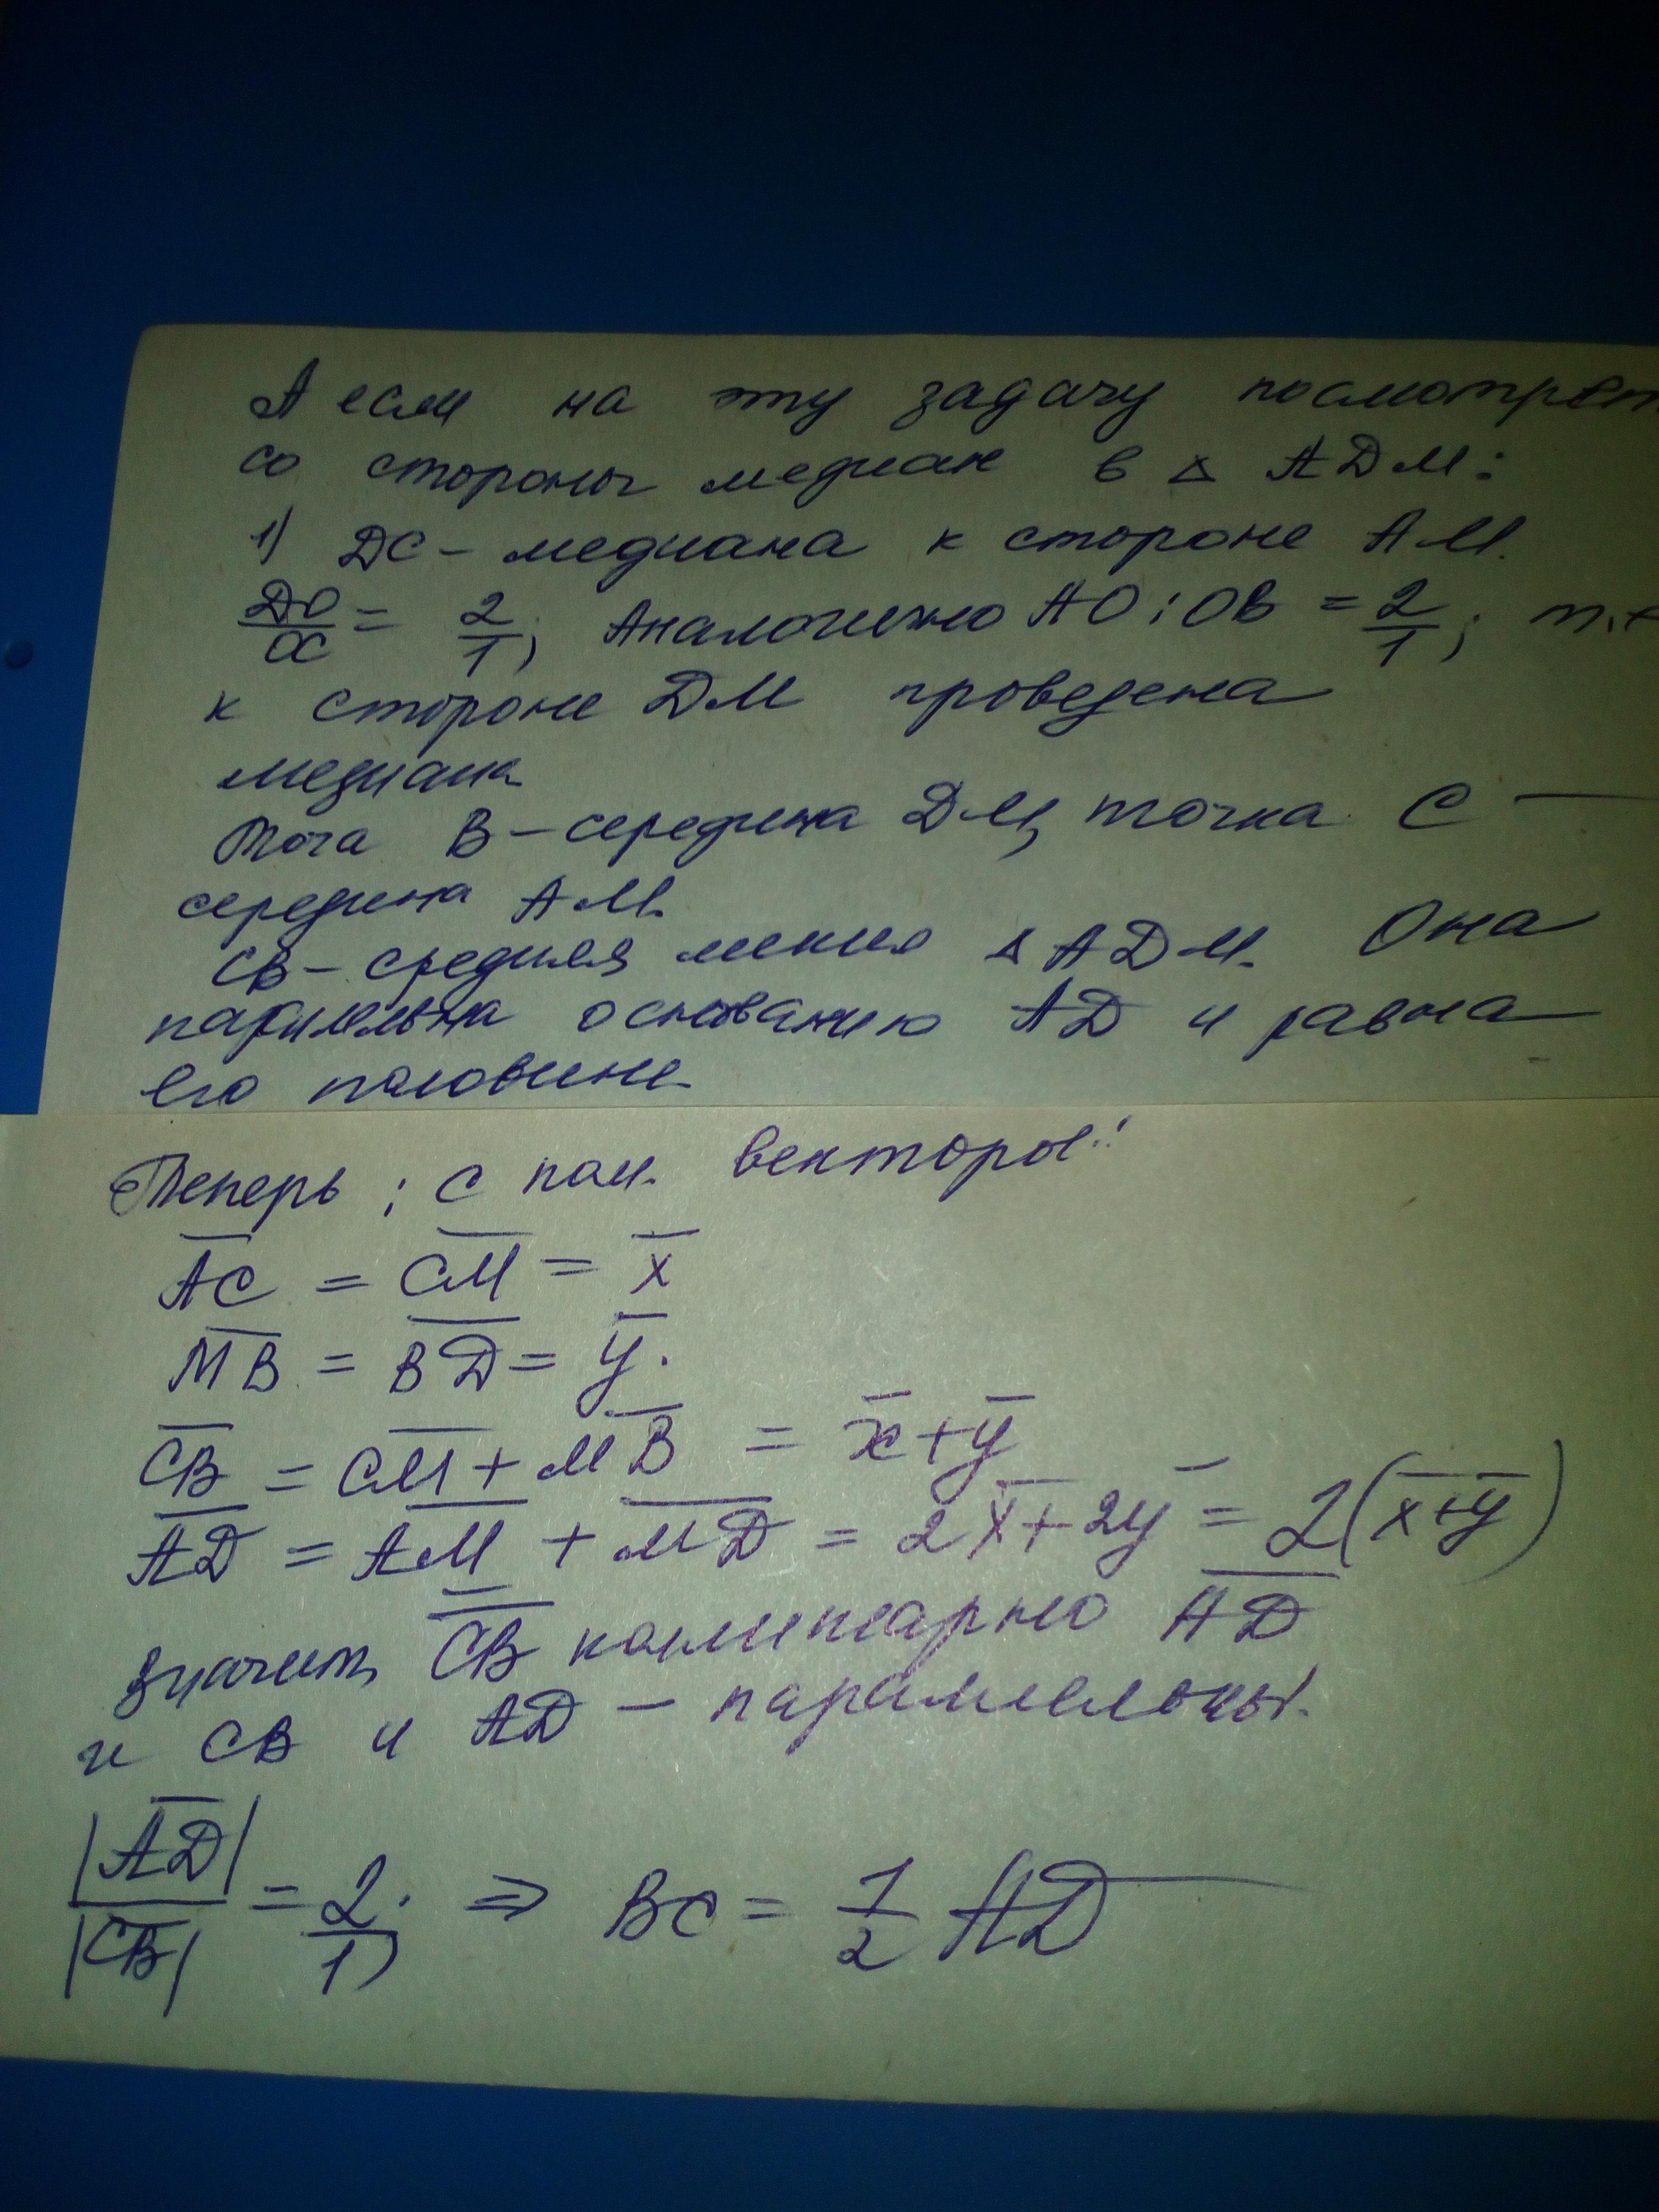 А если на эту задачу посмотрет
со стороны медиан в △ АДМ:
1) ДС - медиана к стороне АМ.
ДО/ОС = 2/1; Аналогично АО : ОВ = 2/1; т.к
к стороне ДМ проведена
медиана
Тога В - середина ДМ, точка С -
середина АМ.
СВ - средняя линия △ АДМ. Она
паралельна основанию АД и равна
его половине.
Теперь : с пом. векторов:
A̅C̅ = C̅M̅ = x̅
M̅B̅ = B̅Д̅ = y̅.
C̅B̅ = C̅M̅ + M̅B̅ = x̅ + y̅
A̅Д̅ = A̅M̅ + M̅Д̅ = 2x̅ + 2y̅ = 2(x̅+y̅)
значит, C̅B̅ коллинеарно A̅Д̅
и СВ и АД - параллельны.
|A̅Д̅|/|C̅B̅| = 2/1; ⇒ ВС = 1/2 АД